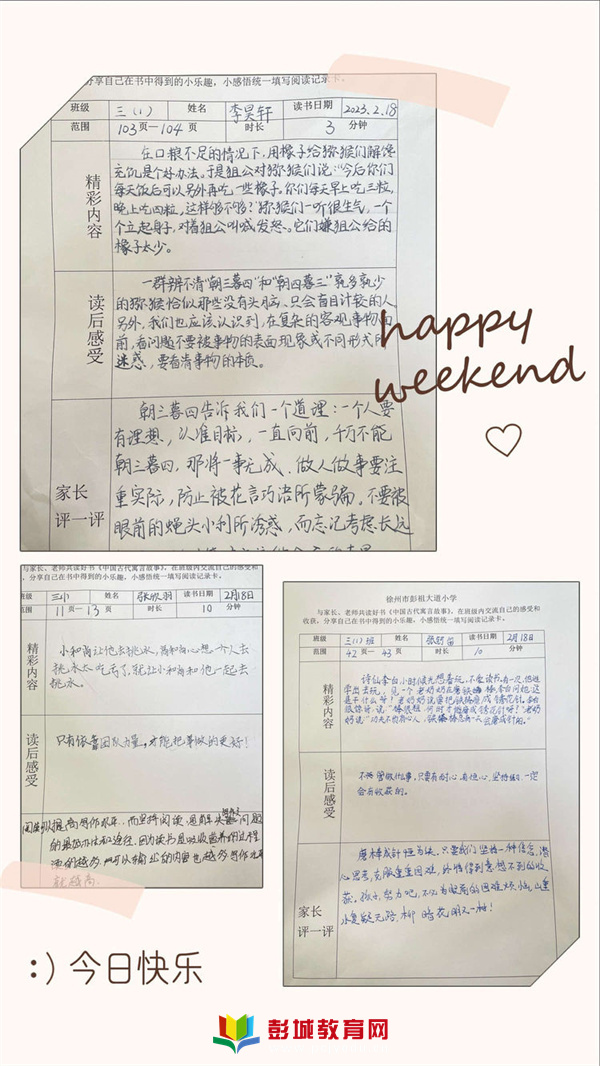 分享自己在书中得到的小乐趣，小感悟统一填写阅读记录卡。
班级 三（1） 姓名 李昊轩 读书日期 2023.2.18
范围 103页—104页 时长 3 分钟
精彩内容
在口粮不足的情况下，用橡子给猕猴们解馋
充饥是个好办法。于是狙公对猕猴们说：“今后你们
每天饭后可以另外再吃一些橡子。你们每天早上吃三粒，
晚上吃四粒，这样够不够？”猕猴们一听很生气，一个
个立起身子，对着狙公叫喊发怒。它们嫌狙公给的
橡子太少。
读后感受
一群辨不清“朝三暮四”和“朝四暮三”孰多孰少
的猕猴恰似那些没有头脑、只会盲目计较的人
另外，我们也应该认识到，在复杂的客观事物面
前，看问题不要被事物的表面现象或不同形式所
迷惑，要看清事物的本质。
家长
评一评
朝三暮四告诉我们一个道理：一个人要
有理想，认准目标，一直向前，千万不能
朝三暮四，那将一事无成、做人做事要注
重实际，防止被花言巧语所蒙骗。不要被
眼前的蝇头小利所诱惑，而忘记考虑长远
happy
weekend
与家长、老师共读好书《中国古代寓言故事》，在班级内交流自己的感受和
，分享自己在书中得到的小乐趣，小感悟统一填写阅读记录卡。
班级 姓名 张欣羽 读书日期 2月18日
范围 11页—13页 时长 10 分钟
精彩内容
小和尚让他去挑水，
挑水太吃亏了，就让小和尚和他一起去
挑水。
读后感受
只有依靠团队力量，才能把事做的更好！
就越高。
徐州市彭祖大道小学
与家长、老师共读好书《中国古代寓言故事》，在班级内交流自己的感受和
收获，分享自己在书中得到的小乐趣，小感悟统一填写阅读记录卡。
班级 三（1）班 姓名 读书日期 2月18日
范围 42页—43页 时长 10 分钟
精彩内容
诗仙李白小时候光想着玩，不爱读书。有一次，他逃
学出去玩，见一个老奶奶在磨铁棒，李白问她这
是干什么呀？老奶奶说要把铁棒磨成绣花针。李白
奶说：“功夫不负有心人，
读后感受
不论曾做什么事，只要有耐心，有恒心，坚持练，一定
会有收获的。
家长
评一评
磨棒成针恒为诀，只要我们坚持一种信念，潜
心思考，克服重重困难，外将得到意想不到的收
获。孩子，努力吧，不必为眼前的困难烦恼，山重
水复疑无路，柳暗花明又一村！
:) 今日快乐
彭城教育网